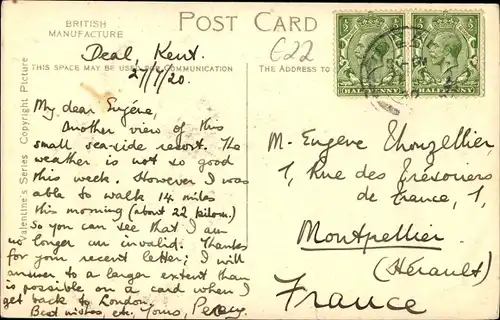 BRITISH
MANUFACTURE
POST CARD
Deal, Kent.
27/7/20.
THIS SPACE MAY BE USED FOR COMMUNICATION
THE ADDRESS TO
£22
HALFPENNY
HALFPENNY
Valentine's Series Copyright Picture
My dear Eugène,
Another view of this
small sea-side resort. The
weather is not so good
this week. However I was
able to walk 14 miles
this morning (about 22 kilom.)
So you can see that I am
no longer an invalid. Thanks
for your recent letter; I will
answer to a larger extent than
is possible on a card when I
get back to London.
Best wishes, etc. Yours, Percy.
M. Eugène Thouzellier,
1, Rue des Trésoriers
de France, 1,
Montpellier
(Hérault)
France